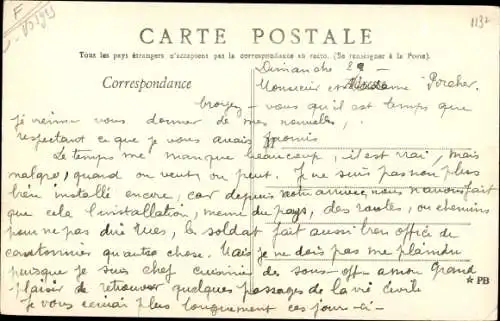 F
1132
CARTE POSTALE
Tous les pays étrangers n'acceptent pas la correspondance au recto. (Se renseigner à la Poste).
Correspondance
Dimanche
Monsieur et Madame Porcher.
Croyez-vous qu'il est temps que
je vienne vous donner de mes nouvelles,
respectant ce que je vous avais promis
Le temps me manque beaucoup, il est vrai, mais
malgré, quand on veut, on peut. Je ne suis pas non plus
bien installé encore, car depuis notre arrivée, nous n'avons fait
que cela l'installation, même du pays, des routes, ou chemins
pour ne pas dire rues, le soldat fait aussi bien office de
cantonnier qu'autre chose. Mais je ne dois pas me plaindre
puisque je suis chef cuisinier des sous-off a mon grand
plaisir de retrouver quelques passages de la vie civile
Je vous écrirai plus longuement ces jours-ci-
PB